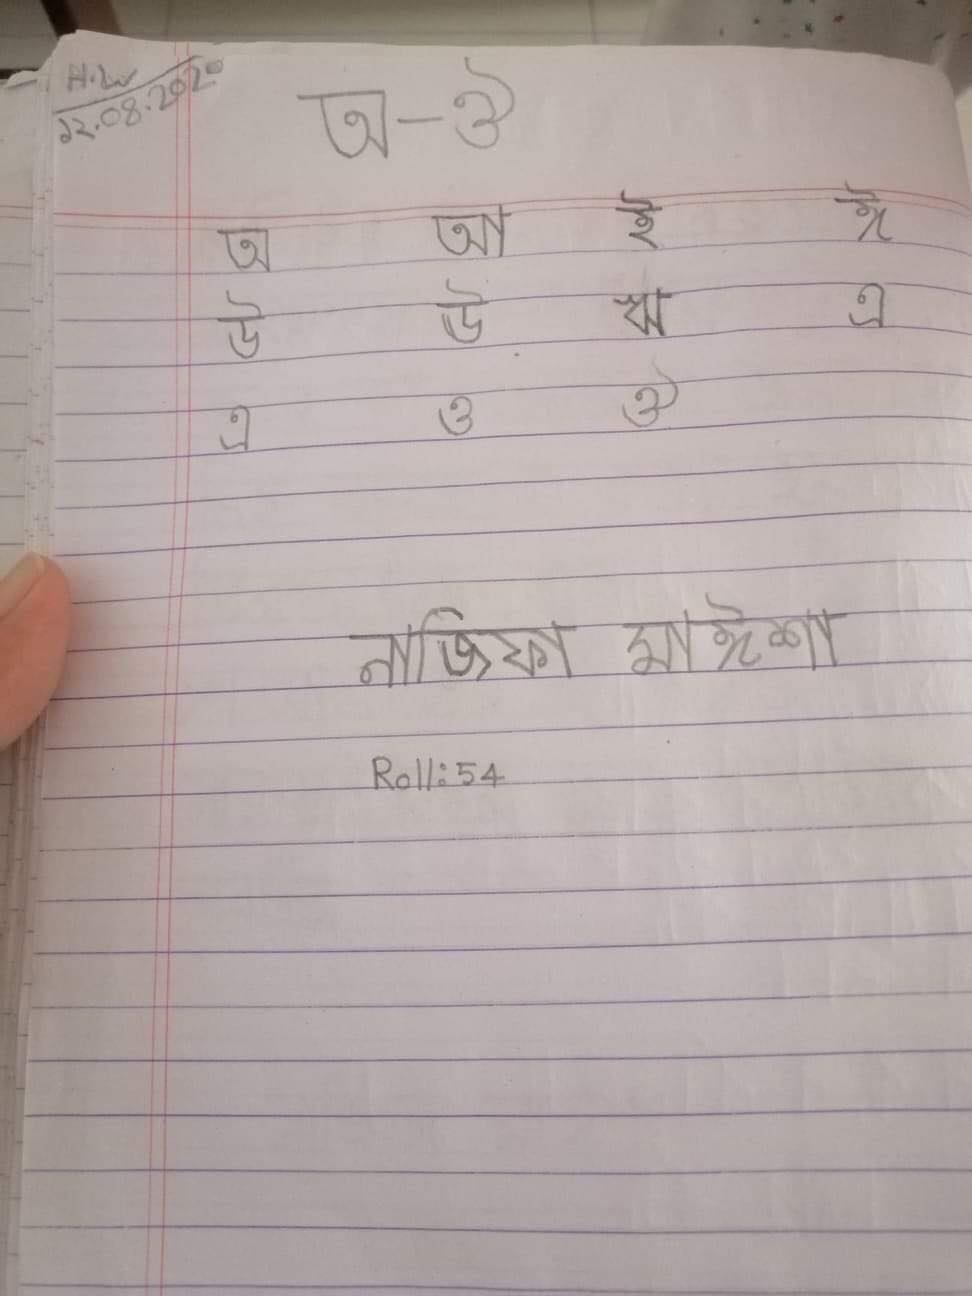 H.W
12.08.2020
অ-ঔ
অ আ ই ঈ
উ উ ঋ এ
এ ও ঔ
নাজিফা মাঈশা
Roll:54